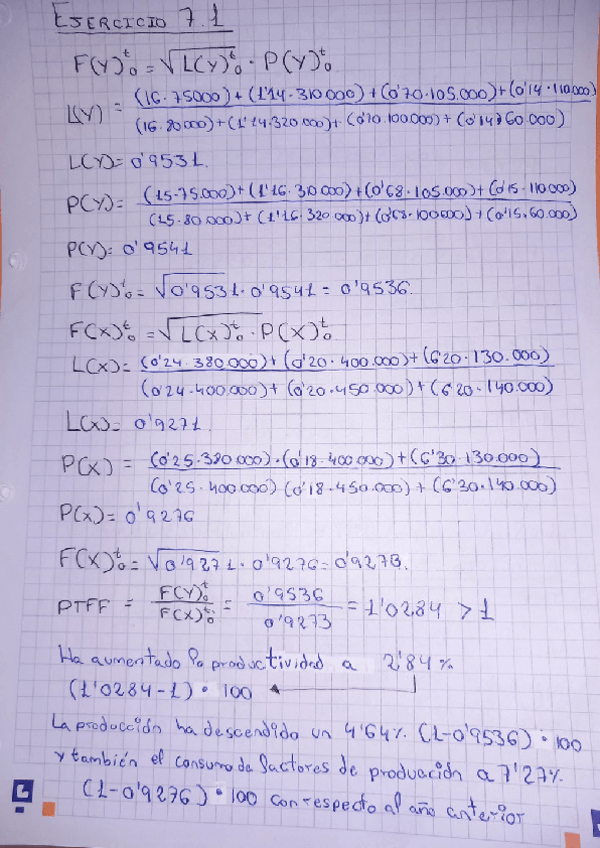 EJERCICIO 7.1
F(Y)ᵗ₀ = √L(Y)ᵗ₀ · P(Y)ᵗ₀
L(Y) = (16·75000)+(1'14·310000)+(0'70·105.000)+(0'14·110.000)
(16·80000)+(1'14·320000)+(0'70·100000)+(0'14·60.000)
L(Y)= 0'9531
P(Y)= (15·75.000)+(1'16·310000)+(0'68·105000)+(0'15·110000)
(15·80.000)+(1'16·320000)+(0'68·100000)+(0'15·60.000)
P(Y)= 0'9541
F(Y)ᵗ₀= √0'9531·0'9541 = 0'9536.
F(X)ᵗ₀=√L(X)ᵗ₀·P(X)ᵗ₀
L(X)= (0'24·380.000)+(0'20·400.000)+(6'20·130.000)
(0'24·400.000)+(0'20·450.000)+(6'20·140.000)
L(X)= 0'9271
P(X) = (0'25·380.000)·(0'18·400.000)+(6'30·130.000)
(0'25·400.000) (0'18·450.000)+(6'30·140.000)
P(X)= 0'9276
F(X)ᵗ₀= √0'9271·0'9276=0'9273.
PTFF = F(Y)ᵗ₀ / F(X)ᵗ₀ = 0'9536 / 0'9273 = 1'0284 > 1
Ha aumentado la productividad a 2'84%
(1'0284-1)·100
La producción ha descendido un 4'64% (1-0'9536)·100
y también el consumo de factores de producción a 7'27%
(1-0'9276)·100 con respecto al año anterior